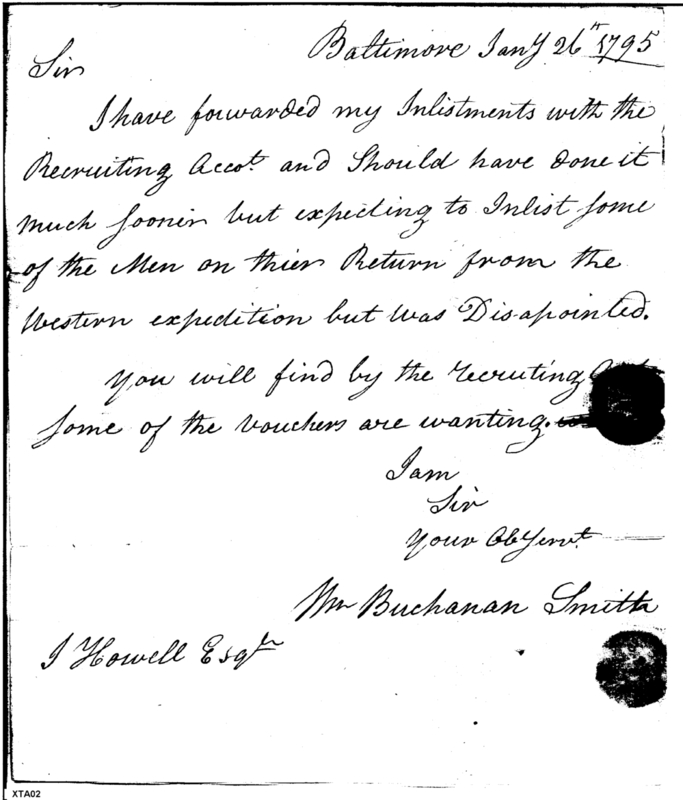 Baltimore Jany 26th 1795
Sir
I have forwarded my Inlistments with the
Recruiting Accot. and Should have done it
much sooner but expecting to Inlist some
of the Men on thier Return from the
Western expedition but was Disapointed.
You will find by the recruiting
some of the vouchers are wanting.
I am
Sir
Your Ob Servt.
Wm Buchanan Smith
J Howell Esqr
XTA02